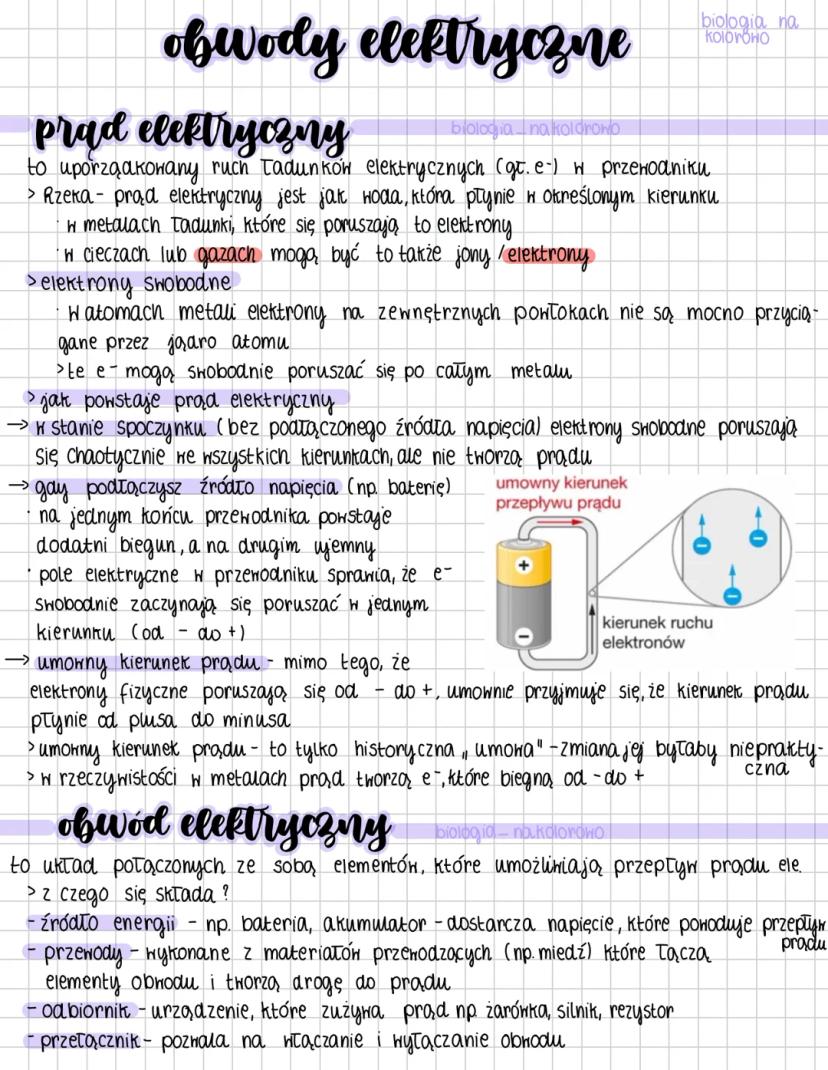 obwody elektryczne
biologia na
kolorowo
prąd elektryczny
biologia_nakolorowo
to uporządkowany ruch ładunków elektrycznych (gł. e-) w przewodniku
> Rzeka - prąd elektryczny jest jak woda, która płynie w określonym kierunku
· w metalach ładunki, które się poruszają to elektrony
· w cieczach lub gazach mogą być to także jony / elektrony
> elektrony swobodne
· W atomach metali elektrony na zewnętrznych powłokach nie są mocno przycią-
gane przez jądro atomu
> te e- mogą swobodnie poruszać się po całym metalu
> jak powstaje prąd elektryczny
→ w stanie spoczynku (bez podłączonego źródła napięcia) elektrony swobodne poruszają
się chaotycznie we wszystkich kierunkach, ale nie tworzą prądu
→ gdy podłączysz źródło napięcia (np. baterię)
· na jednym końcu przewodnika powstaje
dodatni biegun, a na drugim ujemny
· pole elektryczne w przewodniku sprawia, że e-
swobodnie zaczynają się poruszać w jednym
kierunku (od - do +)
umowny kierunek
przepływu prądu
+
-
kierunek ruchu
elektronów
→ umowny kierunek prądu - mimo tego, że
elektrony fizyczne poruszają się od - do +, umownie przyjmuje się, że kierunek prądu
płynie od plusa do minusa
> umowny kierunek prądu - to tylko historyczna „umowa" - zmiana jej byłaby niepraktycz-
czna
> w rzeczywistości w metalach prąd tworzą e-, które biegną od - do +
obwód elektryczny
biologia_nakolorowo
to układ połączonych ze sobą elementów, które umożliwiają przepływ prądu ele.
> z czego się składa?
- źródło energii - np. bateria, akumulator - dostarcza napięcie, które powoduje przepływ
prądu
- przewody - wykonane z materiałów przewodzących (np. miedź) które łączą
elementy obwodu i tworzą drogę do prądu
- odbiornik - urządzenie, które zużywa prąd np. żarówka, silnik, rezystor
- przełącznik - pozwala na włączanie i wyłączanie obwodu